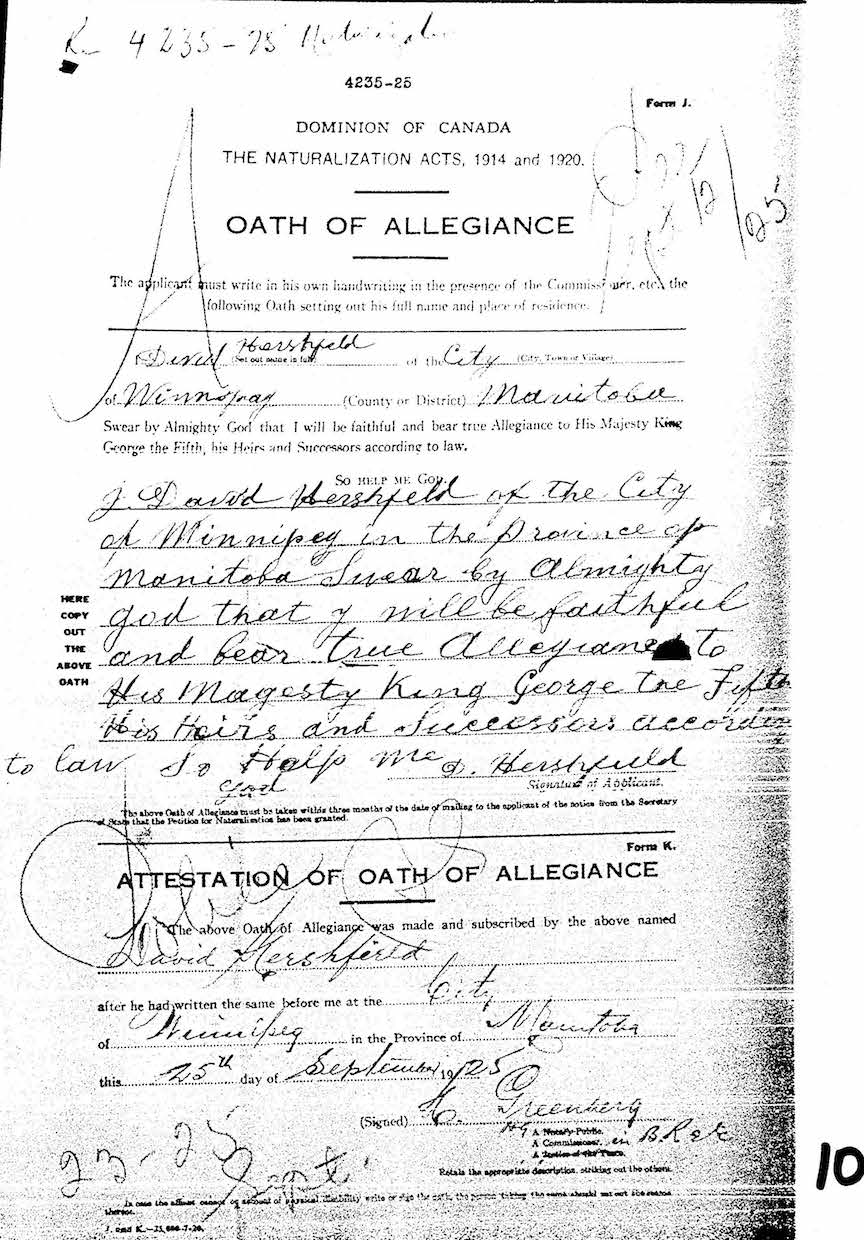 4235-25
4235-25
Form J.
DOMINION OF CANADA
THE NATURALIZATION ACTS, 1914 and 1920.
12/25
OATH OF ALLEGIANCE
The applicant must write in his own handwriting in the presence of the Commissioner, etc., the
following Oath setting out his full name and place of residence.
I David Hershfeld of the City (City, Town or Village)
(Set out name in full)
of Winnspag (County or District) Manitoba
Swear by Almighty God that I will be faithful and bear true Allegiance to His Majesty King
George the Fifth, his Heirs and Successors according to law.
SO HELP ME GOD.
I David Hershfeld of the City
of Winnipeg in the Province of
Manitoba Swear by Almighty
god that y will be faithful
and bear true Allegiance to
His Magesty King George the Fifth
His Heirs and Successors according
to law So Help me
God
HERE
COPY
OUT
THE
ABOVE
OATH
D. Hershfield
Signature of Applicant.
The above Oath of Allegiance must be taken within three months of the date of mailing to the applicant of the notice from the Secretary
of State that the Petition for Naturalization has been granted.
Form K.
ATTESTATION OF OATH OF ALLEGIANCE
The above Oath of Allegiance was made and subscribed by the above named
David Hershfield
after he had written the same before me at the City
of Winnipeg in the Province of Manitoba
this 25th day of September 1925
(Signed) Greenberg
A Notary Public.
A Commissioner, in B R etc
A Justice of the Peace.
Retain the appropriate description, striking out the others.
23-25
Sept
In case the affiant cannot on account of physical disability write or sign the oath, the person taking the same should set out the reason
thereof.
J. and K.
10